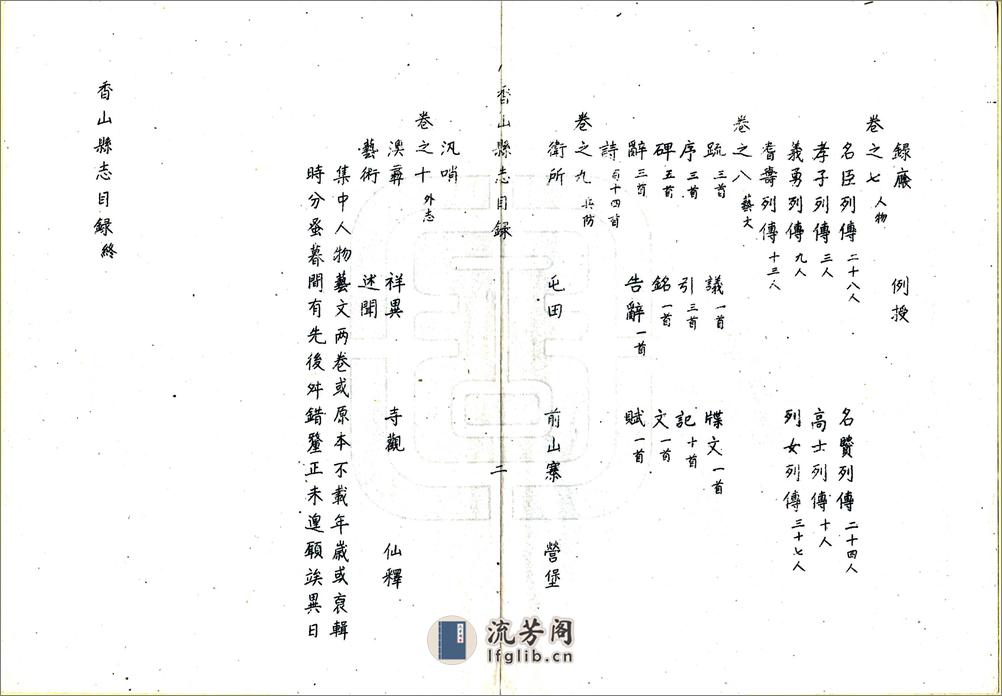 錄廕　例授
卷之七 人物
名臣列傳 二十八人　名賢列傳 二十四人
孝子列傳 三人　高士列傳 十人
義勇列傳 九人　列女列傳 三十七人
耆壽列傳 十三人
卷之八 藝文
疏 三首　議 一首　牒文 一首
序 三首　引 三首　記 十首
碑 五首　銘 一首　文 一首
辭 三首　告辭 一首　賦 一首
詩 百十四首
卷之九 兵防
衛所　屯田　前山寨　營堡
香山縣志目錄　二
汛哨
卷之十 外志
澳彝　祥異　寺觀　仙釋
藝術　述聞
集中人物藝文两卷或原本不載年歲或裒輯
時分蚤暮間有先後舛錯釐正未遑願竢異日
香山縣志目錄 終
流芳阁
lfglib.cn